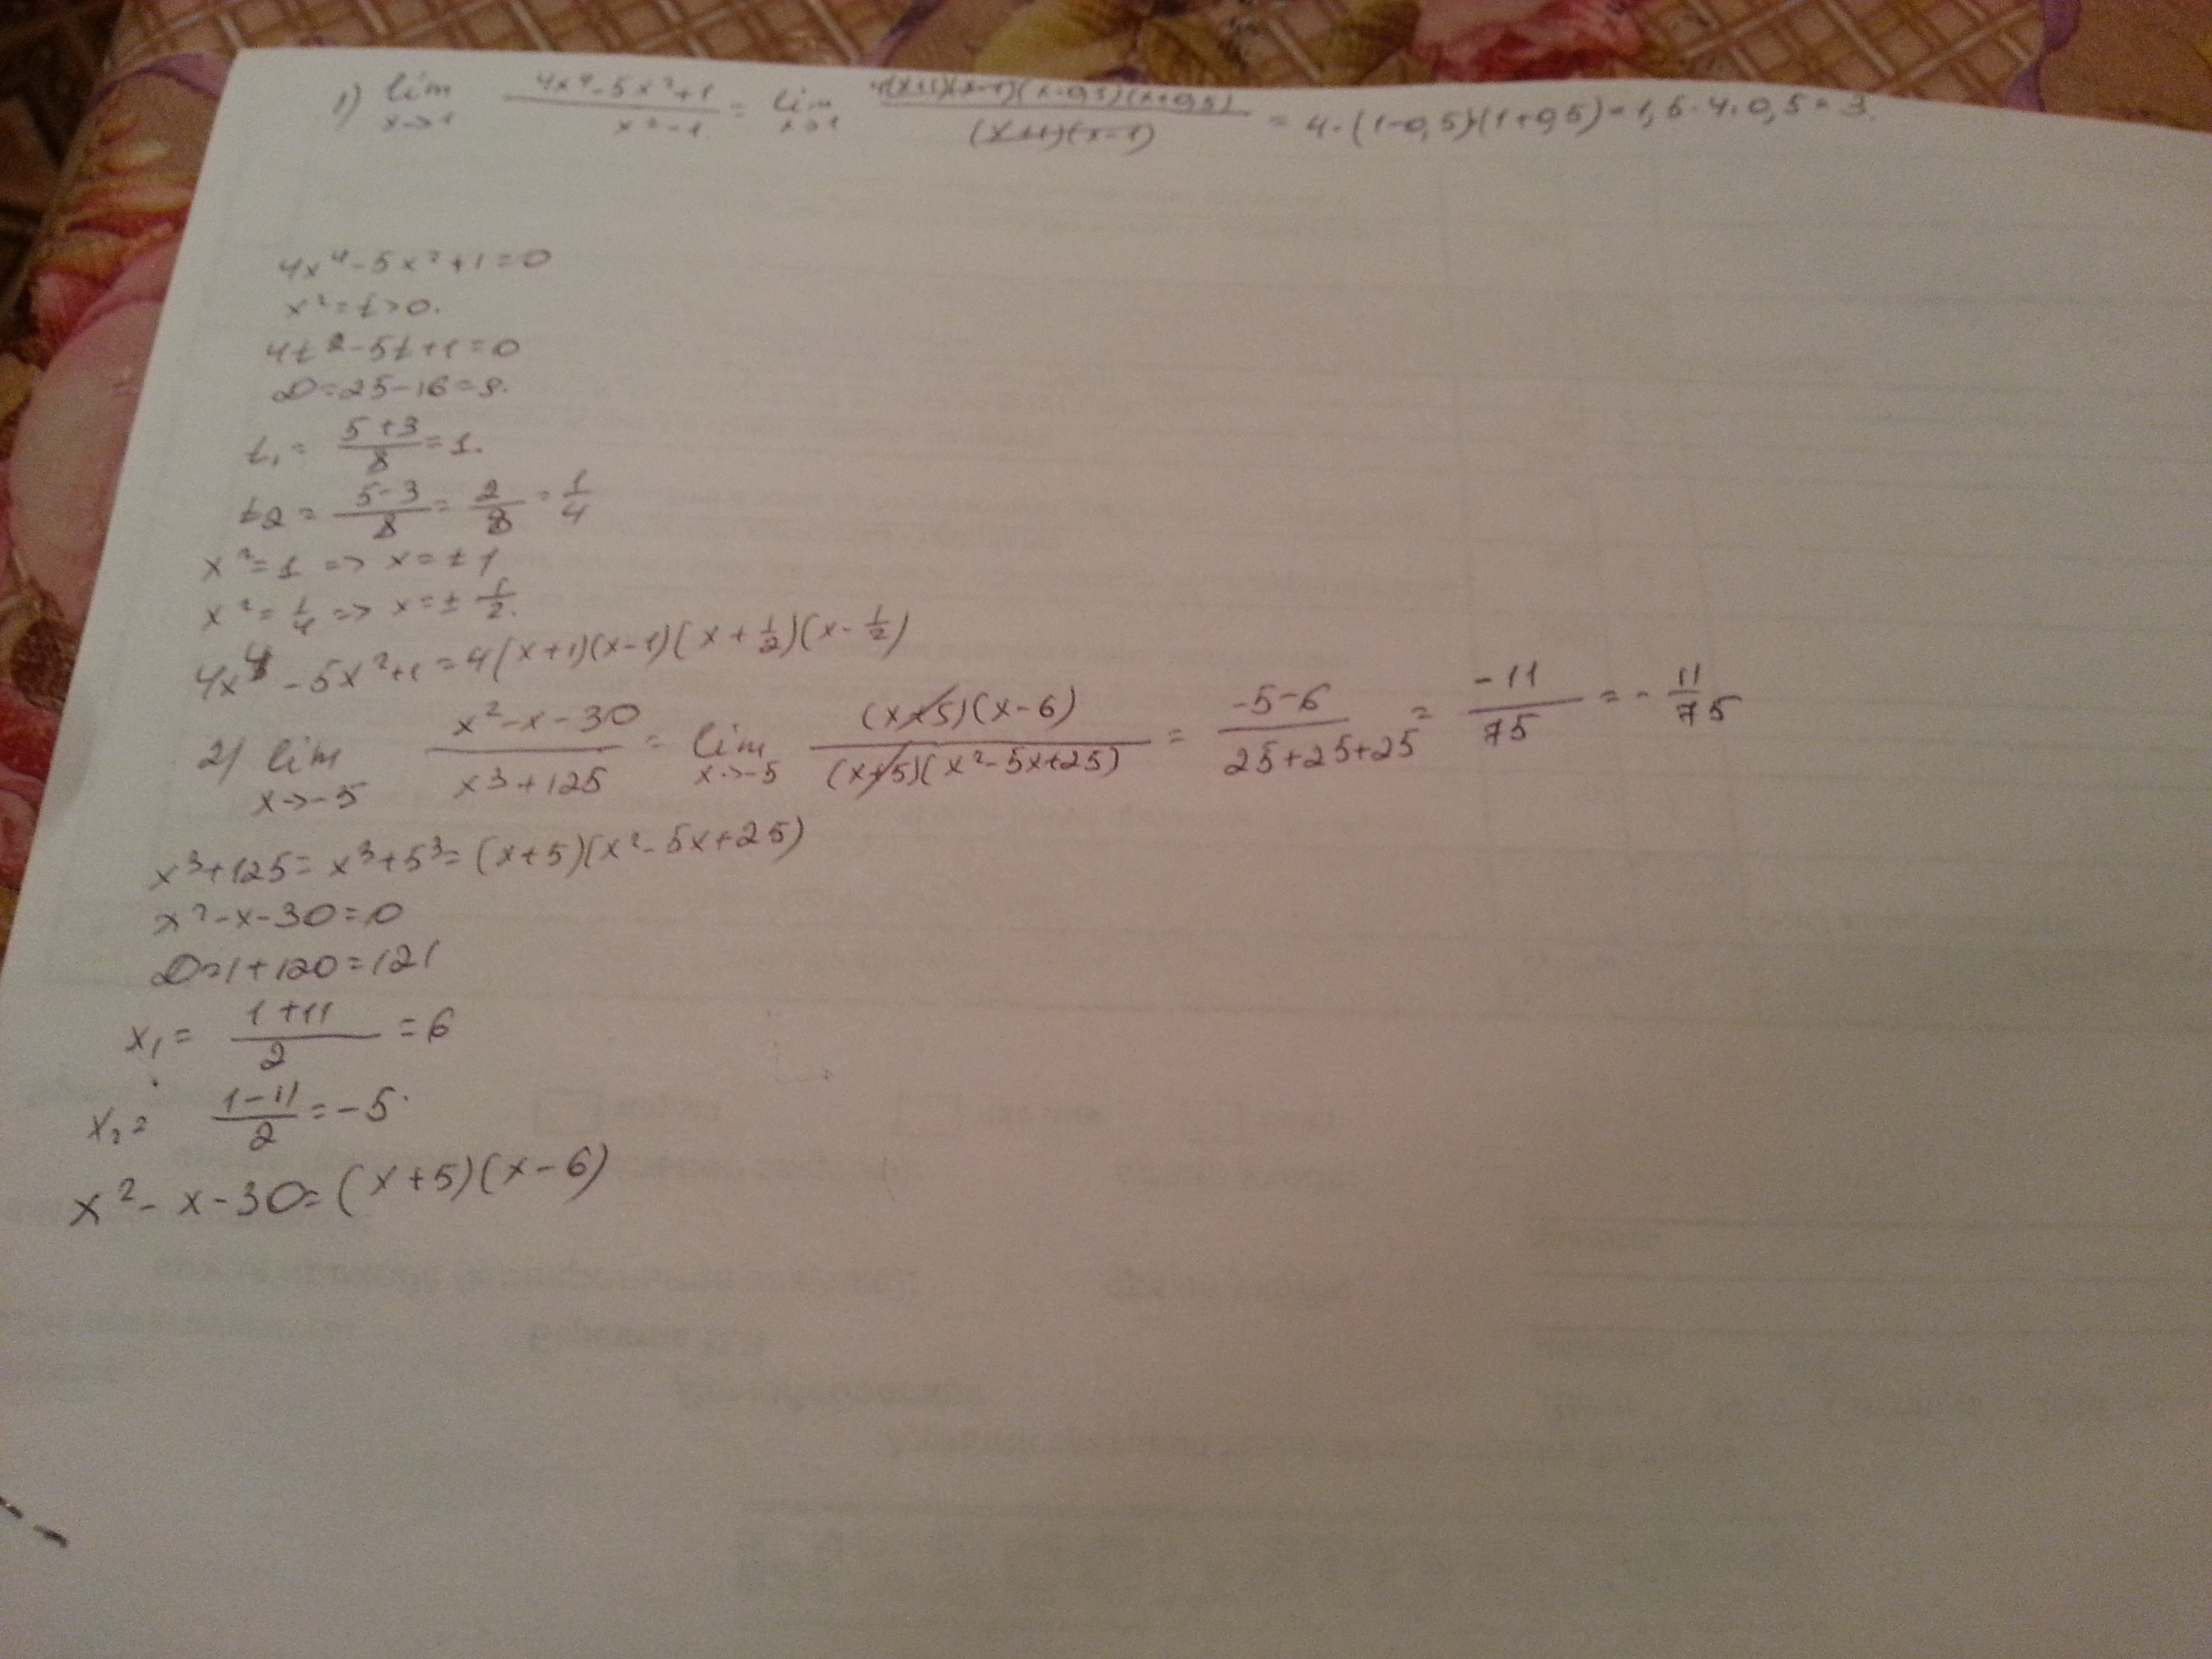 1) lim x→1 (4x⁴-5x²+1)/(x²-1) = lim x→1 (4(x+1)(x-1)(x-0,5)(x+0,5))/((x+1)(x-1)) = 4·(1-0,5)(1+0,5)=1,5·4·0,5=3.
4x⁴-5x²+1=0
x²=t>0.
4t²-5t+1=0
D=25-16=9.
t₁= (5+3)/8 =1.
t₂= (5-3)/8 = 2/8 = 1/4
x²=1 => x=±1
x²=1/4 => x=± 1/2.
4x⁴-5x²+1=4(x+1)(x-1)(x+1/2)(x-1/2)
2) lim x→-5 (x²-x-30)/(x³+125) = lim x→-5 ((x+5)(x-6))/((x+5)(x²-5x+25)) = (-5-6)/(25+25+25) = -11/75 = - 11/75
x³+125=x³+5³=(x+5)(x²-5x+25)
x²-x-30=0
D=1+120=121
x₁= (1+11)/2 =6
x₂= (1-11)/2 =-5
x²-x-30=(x+5)(x-6)